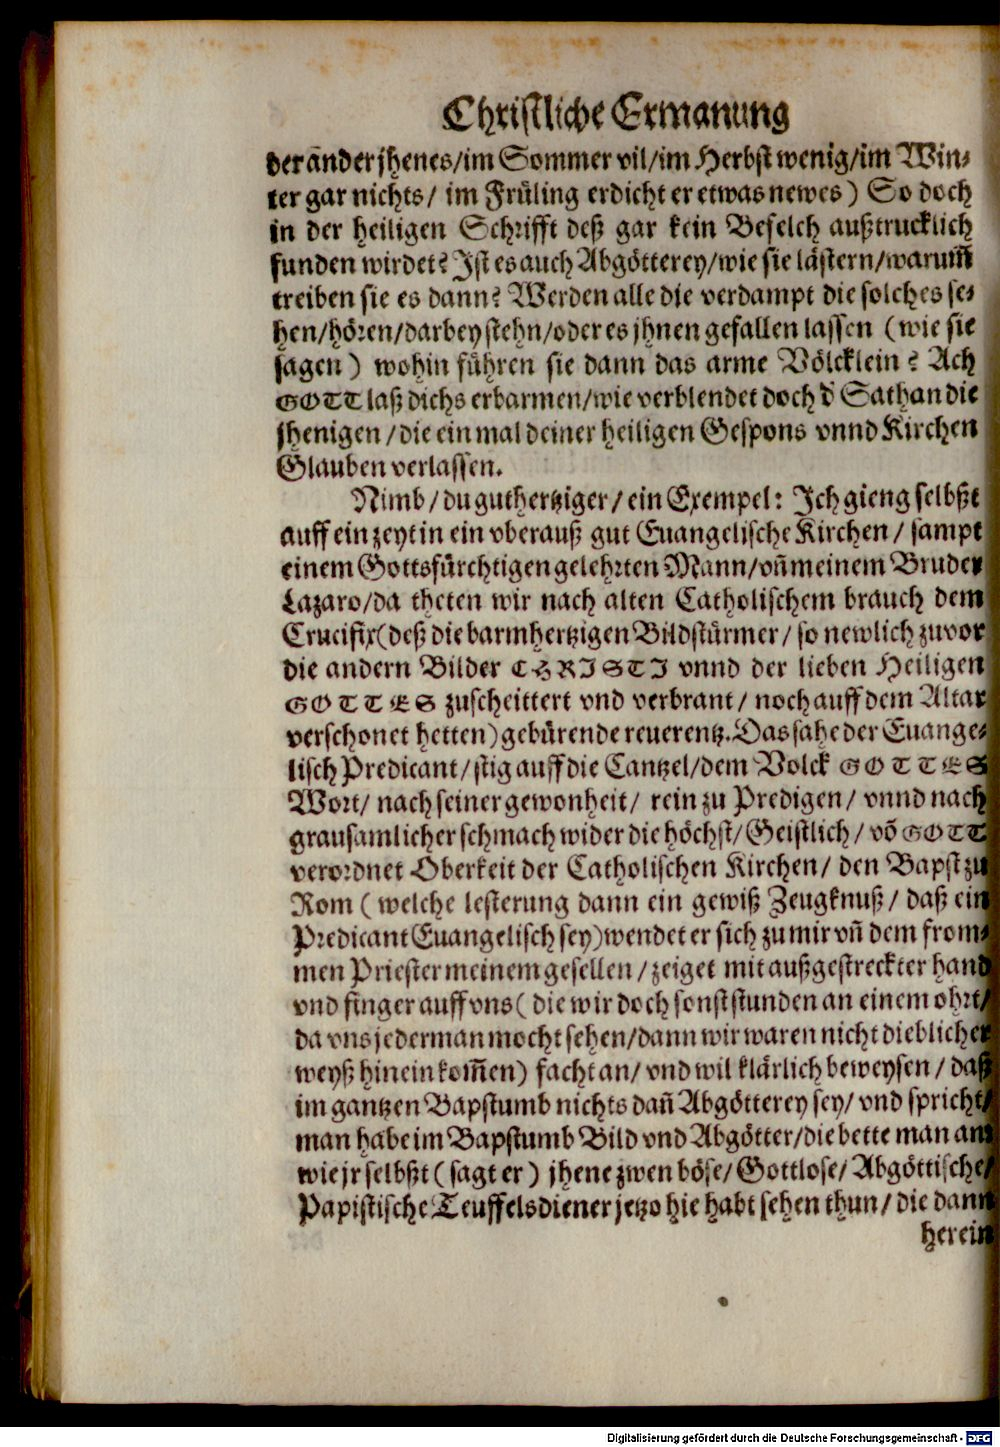 Christliche Ermanung
der ander jhenes/im Sommer vil/im Herbst wenig/im Win-
ter gar nichts/ im Früling erdicht er etwas newes) So doch
in der heiligen Schrifft deß gar kein Befelch außtrucklich
funden wirdet? Ist es auch Abgötterey/wie sie lästern/warum̃
treiben sie es dann? Werden alle die verdampt die solches se-
hen/hören/darbey stehn/oder es jhnen gefallen lassen (wie sie
sagen) wohin führen sie dann das arme Völcklein? Ach
GOTT laß dichs erbarmen/wie verblendet doch d' Sathan die
jhenigen/die ein mal deiner heiligen Gespons vnnd Kirchen
Glauben verlassen.
Nimb/du guthertziger/ein Exempel: Ich gieng selbßt
auff ein zeyt in ein vberauß gut Euangelische Kirchen/ sampt
einem Gottsfürchtigen gelehrten Mann/vñ meinem Bruder
Lazaro/da theten wir nach alten Catholischem brauch dem
Crucifix (deß die barmhertzigen Bildstürmer/ so newlich zuvor
die andern Bilder CHRISTI vnnd der lieben Heiligen
GOTTES zuscheittert vnd verbrant/ noch auff dem Altar
verschonet hetten) gebürende reuerentz. Das sahe der Euange-
lisch Predicant/stig auff die Cantzel/dem Volck GOTTES
Wort/ nach seiner gewonheit/ rein zu Predigen/ vnnd nach
grausamlicher schmach wider die höchst/Geistlich/ võ GOTT
verordnet Oberkeit der Catholischen Kirchen/ den Bapst zu
Rom (welche lesterung dann ein gewiß Zeugknuß/ daß ein
Predicant Euangelisch sey) wendet er sich zu mir vñ dem from-
men Priester meinem gesellen/zeiget mit außgestreckter hand
vnd finger auff vns (die wir doch sonst stunden an einem ohrt/
da vns jederman mocht sehen/dann wir waren nicht dieblicher
weyß hinein kom̃en) facht an/ vnd wil klärlich beweysen/ daß
im gantzen Bapstumb nichts dañ Abgötterey sey/ vnd spricht/
man habe im Bapstumb Bild vnd Abgötter/die bette man an/
wie jr selbßt (sagt er) jhene zwen böse/Gottlose/Abgöttische/
Papistische Teuffelsdiener jetzo hie habt sehen thun/ die dann
herein
Digitalisierung gefördert durch die Deutsche Forschungsgemeinschaft - DFG